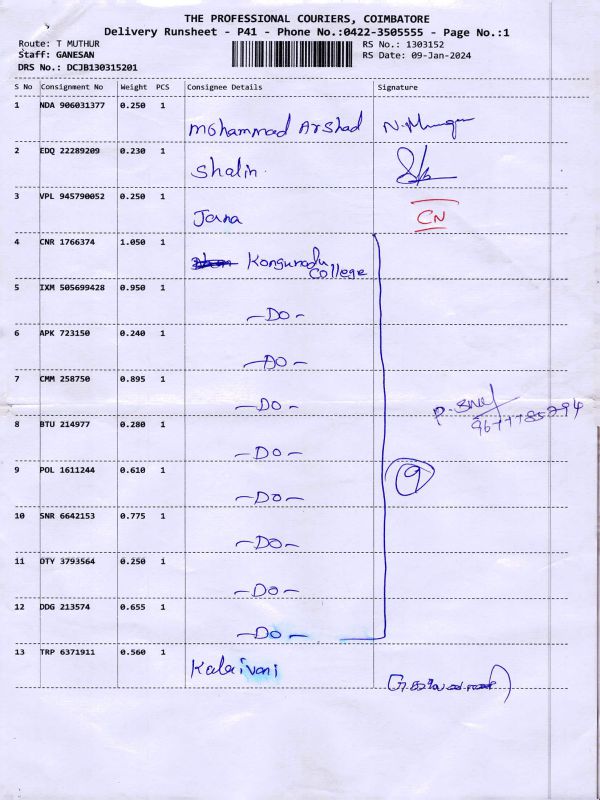 THE PROFESSIONAL COURIERS, COIMBATORE
Delivery Runsheet - P41 - Phone No.:0422-3505555 - Page No.:1
Route: T MUTHUR
Staff: GANESAN
DRS No.: DCJB130315201
RS No.: 1303152
RS Date: 09-Jan-2024
S No Consignment No Weight PCS Consignee Details Signature
1 NDA 906031377 0.250 1
Mohammad Arshad
2 EDQ 22289209 0.230 1
Shalin.
3 VPL 945790052 0.250 1
Jana CN
4 CNR 1766374 1.050 1
Kongunadu
College
5 IXM 505699428 0.950 1
-Do-
6 APK 723150 0.240 1
-Do-
7 CMM 258750 0.895 1
-Do-
8 BTU 214977 0.280 1
-Do-
9 POL 1611244 0.610 1
-Do- 9
10 SNR 6642153 0.775 1
-Do-
11 OTY 3793564 0.250 1
-Do-
12 DDG 213574 0.655 1
-Do-
13 TRP 6371911 0.560 1
Kalaivani